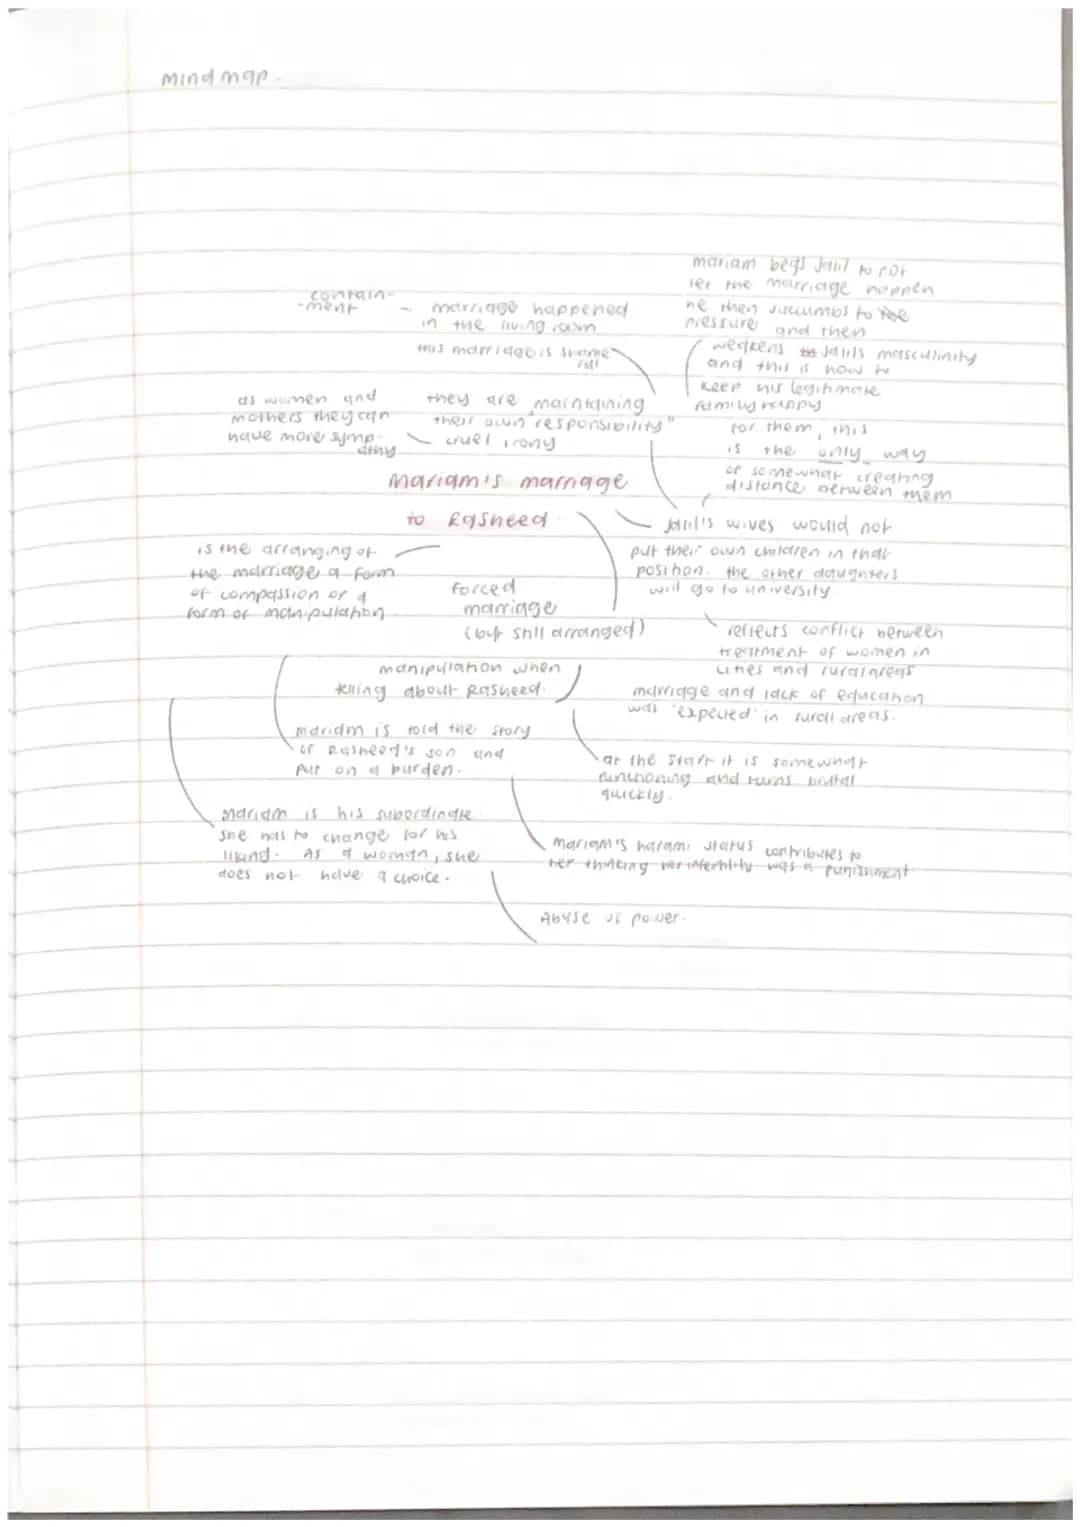 mind map.
contain-
-ment
- marriage happened
in the living room
this marriage is shame-
full
mariam begs Jalil to not
let the marriage happen
he then succumbs to the
pressure and then
weakens Jalils masculinity
and this is how to
keep his legitimate
family happy
as women and
mothers they can
have more symp-
athy
they are "maintaining
their own responsibility"
cruel irony
for them, this
is the only way
of somewhat creating
distance between them
Mariam's marriage
to Rasheed.
Jalil's wives would not
put their own children in that
position. the other daughters
will go to university
is the arranging of
the marriage a form
of compassion or a
form of manipulation
forced
marriage
(but still arranged)
reflects conflict between
treatment of women in
cities and rural areas
manipulation when
telling about Rasheed.
marriage and lack of education
was 'expected' in rural areas.
mariam is told the story
of Rasheed's son and
put on a burden.
at the start it is somewhat
functioning and turns brutal
quickly.
Mariam is his subordinate.
she has to change for his
liking. As a woman, she
does not have a choice.
mariam's harami status contributes to
her thinking her infertility was a punishment
Abuse of power.